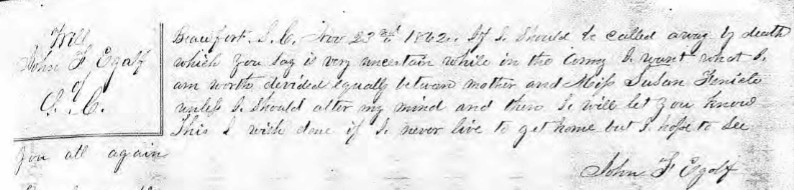 Will
John F Egolf
of
S. C.
Beaufort S. C. Nov 23rd 1862. If I should be called away by death
which you say is very uncertain while in the army I want what I
am worth divided equally between mother and Miss Susan Fenicle
unless I should alter my mind and then I will let you know
This I wish done if I never live to get home but I hope to see
you all again
John F Egolf